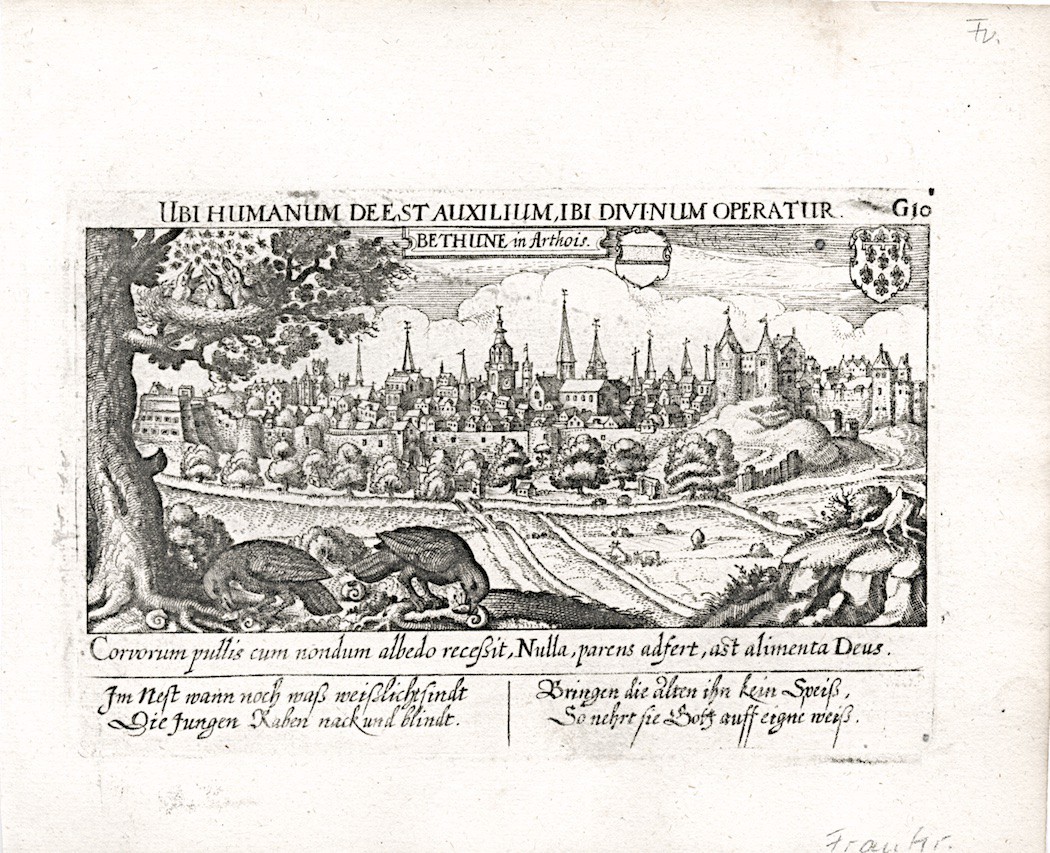 Fr.
UBI HUMANUM DEEST AUXILIUM, IBI DIVINUM OPERATUR. G10
BETHUNE in Arthois.
Corvorum pullis cum nondum albedo receßit, Nulla, parens adfert, ast alimenta Deus.
Im Nest wann noch waß weißlicht sindt
Die Jungen Raben nack und blindt.
Bringen die alten ihn kein Speiß,
So nehrt sie Gott auff eigne weiß.